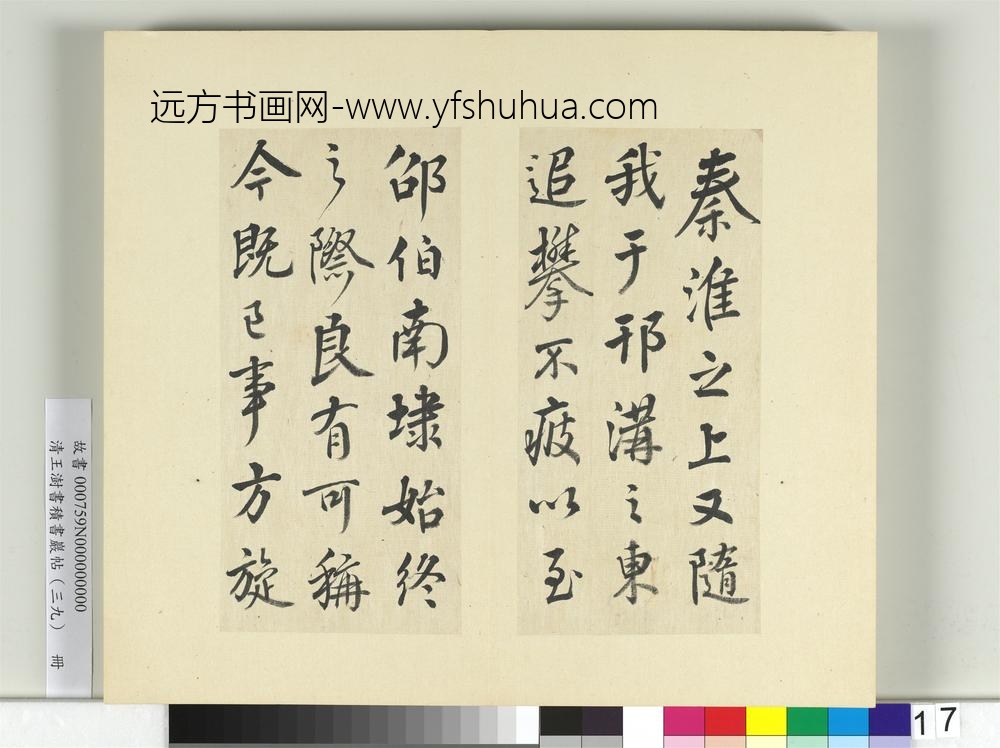 远方书画网-www.yfshuhua.com
秦淮之上又隨
我于邗溝之東
追攀不疲以至
邵伯南埭始終
之際良有可稱
今既已事方旋
故書 000759N000000000
清王澍書積書巖帖(三九) 冊
17